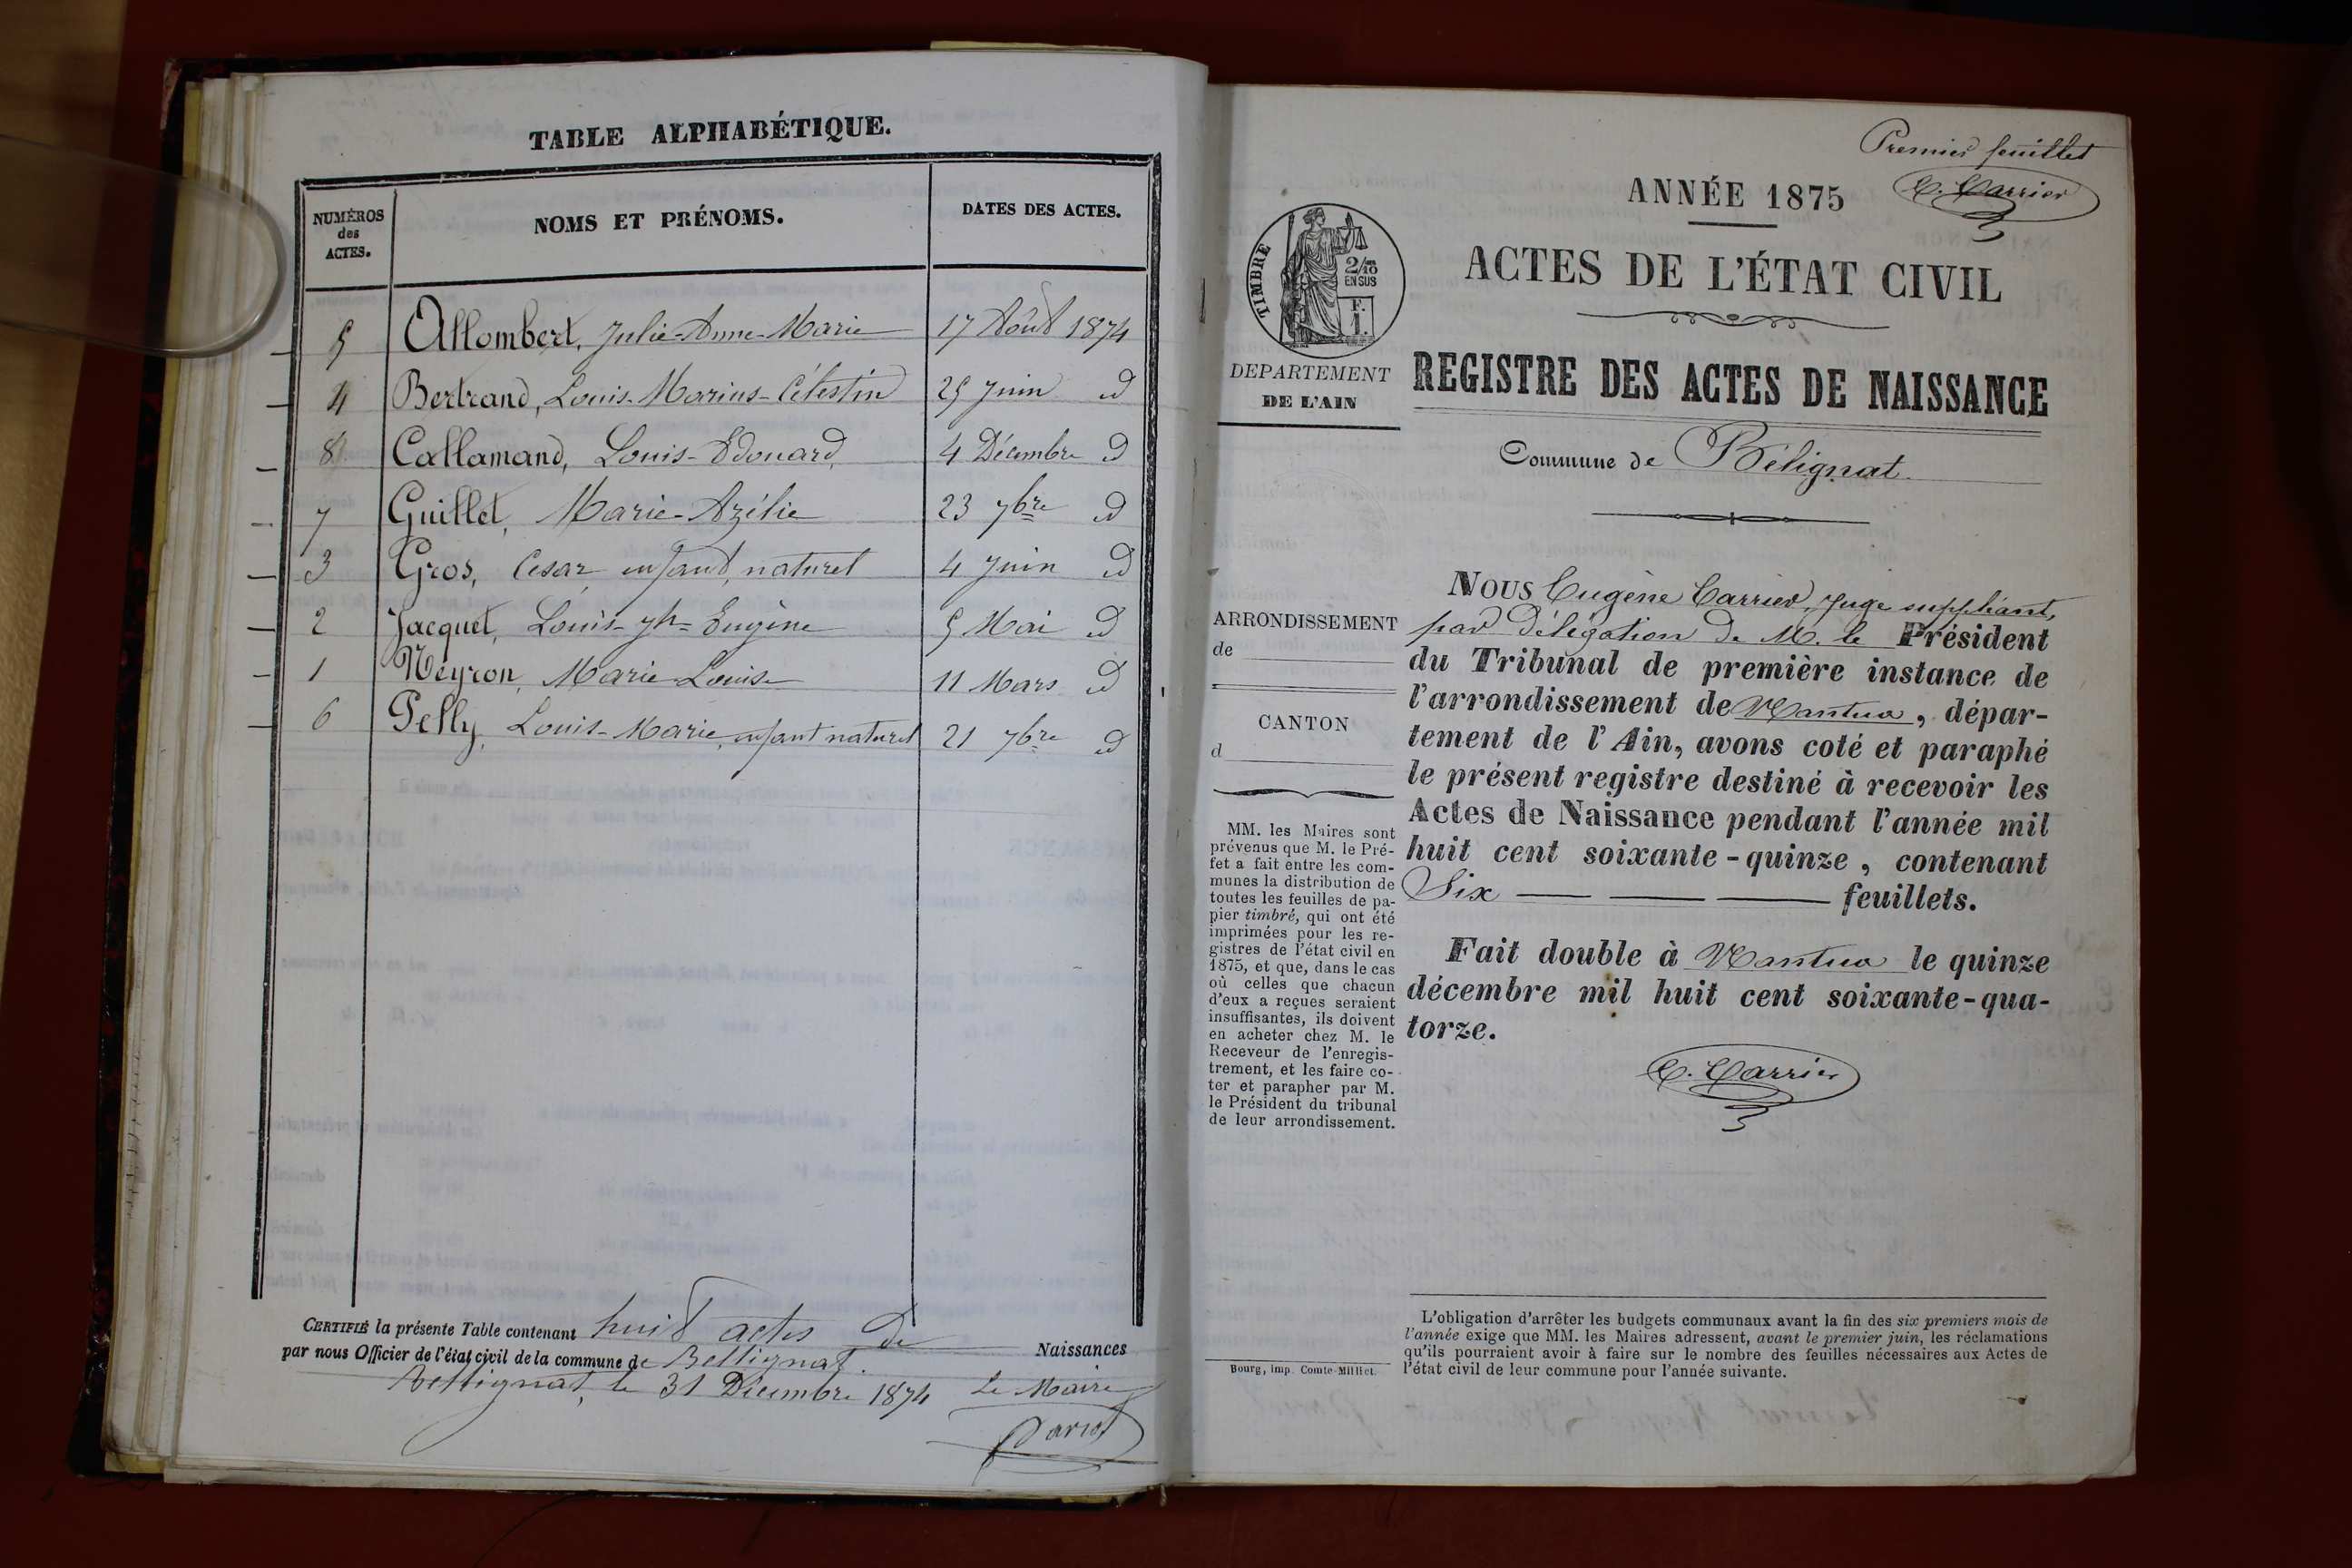 TABLE ALPHABÉTIQUE.
NUMÉROS des ACTES. NOMS ET PRÉNOMS. DATES DES ACTES.
5 Allombert, Julie-Anne-Marie 17 Août 1874
4 Bertrand, Louis-Marius-Célestin 25 Juin id
8 Callamand, Louis-Edouard, 4 Décembre id
7 Guillet, Marie-Azélie 23 7bre id
3 Gros, César enfant, naturel 4 Juin id
2 Jacquet, Louis-Jh-Eugène 5 Mai id
1 Neyron, Marie Louise 11 Mars id
6 Pelly, Louis-Marie, enfant naturel 21 7bre id
CERTIFIÉ la présente Table contenant huit actes de Naissances
par nous Officier de l'état civil de la commune de Bellignat.
Bellignat, le 31 Décembre 1874 Le Maire
Premier feuillet
E. Carrier
ANNÉE 1875
ACTES DE L'ÉTAT CIVIL
TIMBRE
2/10
EN SUS
F.
1.
DEPARTEMENT
DE L'AIN
REGISTRE DES ACTES DE NAISSANCE
Commune de Bélignat
ARRONDISSEMENT
de
CANTON
d
MM. les Maires sont
prévenus que M. le Pré-
fet a fait entre les com-
munes la distribution de
toutes les feuilles de pa-
pier timbré, qui ont été
imprimées pour les re-
gistres de l'état civil en
1875, et que, dans le cas
où celles que chacun
d'eux a reçues seraient
insuffisantes, ils doivent
en acheter chez M. le
Receveur de l'enregis-
trement, et les faire co-
ter et parapher par M.
le Président du tribunal
de leur arrondissement.
NOUS Eugène Carrier, Juge suppléant,
par Délégation de M. le Président
du Tribunal de première instance de
l'arrondissement de Nantua, dépar-
tement de l'Ain, avons coté et paraphé
le présent registre destiné à recevoir les
Actes de Naissance pendant l'année mil
huit cent soixante-quinze, contenant
Six feuillets.
Fait double à Nantua le quinze
décembre mil huit cent soixante-qua-
torze.
E. Carrier
L'obligation d'arrêter les budgets communaux avant la fin des six premiers mois de
l'année exige que MM. les Maires adressent, avant le premier juin, les réclamations
qu'ils pourraient avoir à faire sur le nombre des feuilles nécessaires aux Actes de
l'état civil de leur commune pour l'année suivante.
Bourg, imp. Comte-Milliet.